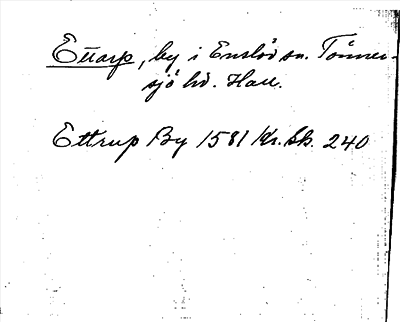 Ettarp, by i Enslöv sn. Tönner-
sjö hd. Hall.
Ettrup By 1581 Kr. Sk. 240